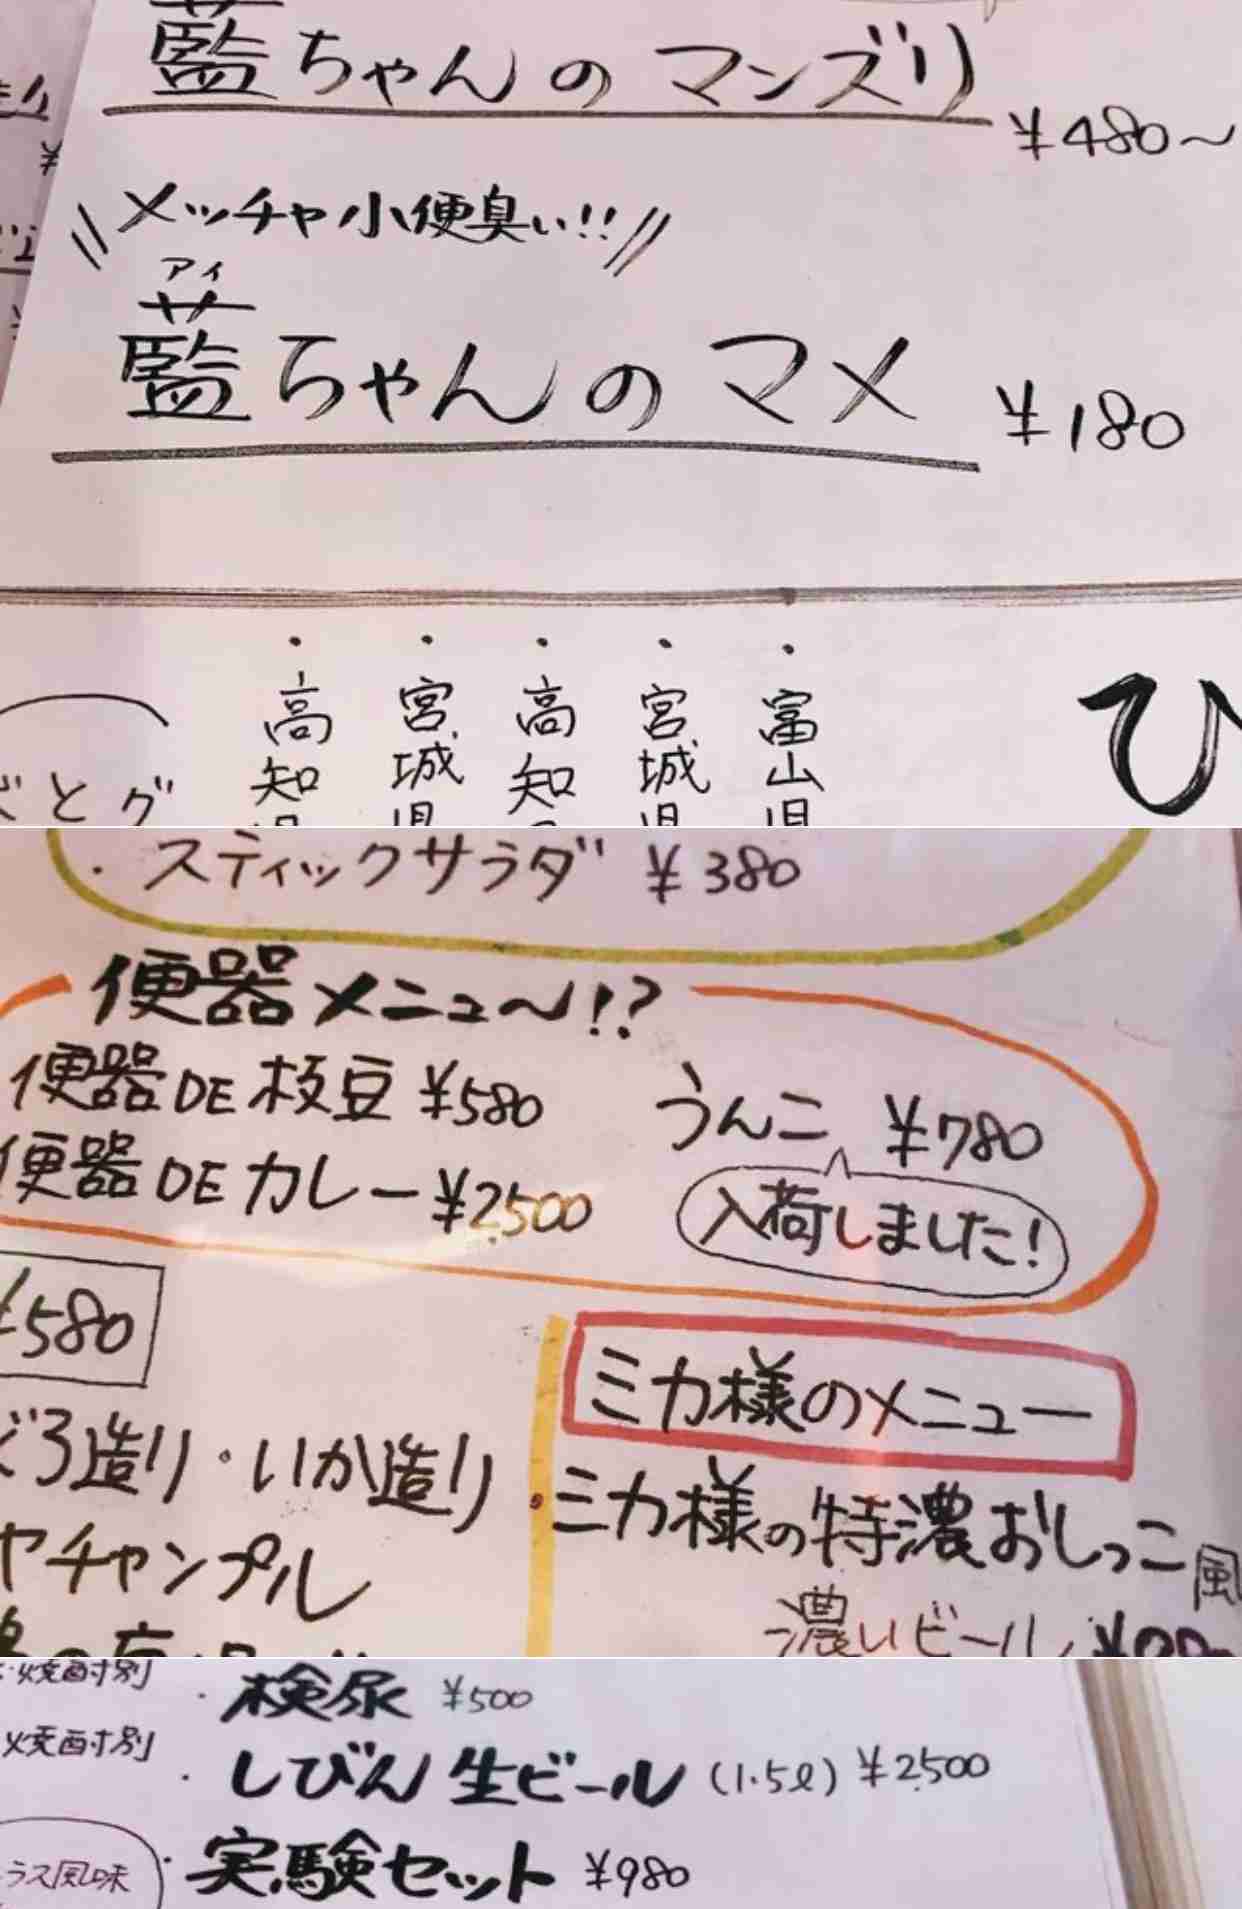 藍ちゃんのマンズリ
¥480～
メッチャ小便臭い!!
アイ
藍ちゃんのマメ
¥180
ひ
・富山県
・宮城県
・高知
・宮城県
・高知
とグ
・スティックサラダ ¥380
便器メニュ～!?
便器DE枝豆 ¥580
うんこ ¥780
便器DEカレー ¥2,500
入荷しました!
¥580
ミカ様のメニュー
ろ造り・いか造り
・ミカ様の特濃おしっこ風
ヤチャンプル
濃いビール
焼酎別
・検尿 ¥500
焼酎別
・しびん生ビール (1.5ℓ) ¥2,500
・実験セット ¥980
ラス風味